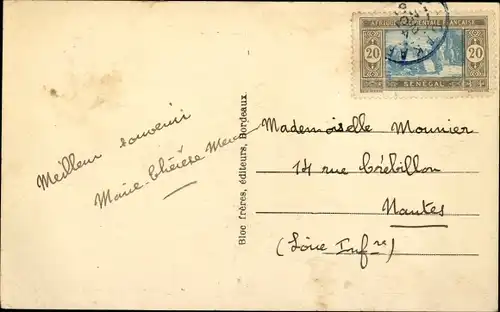 AFRIQUE OCCIDENTALE FRANÇAISE
20 20
SÉNÉGAL
Meilleur souvenir
Marie-Thérèse
Bloc frères, éditeurs, Bordeaux.
Mademoiselle Mounier
14 rue Crébillon
Nantes
(Loire Infre)